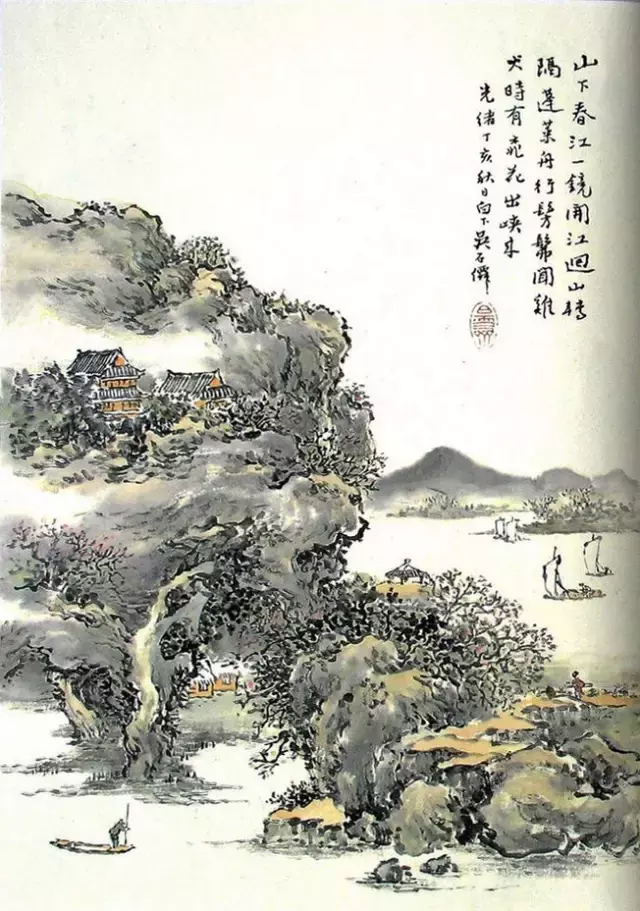 山下春江一鏡開江迴山轉
隔蓬萊舟行髣髴聞雞
犬時有飛花出峽來
光緒丁亥秋日白下吳石僊